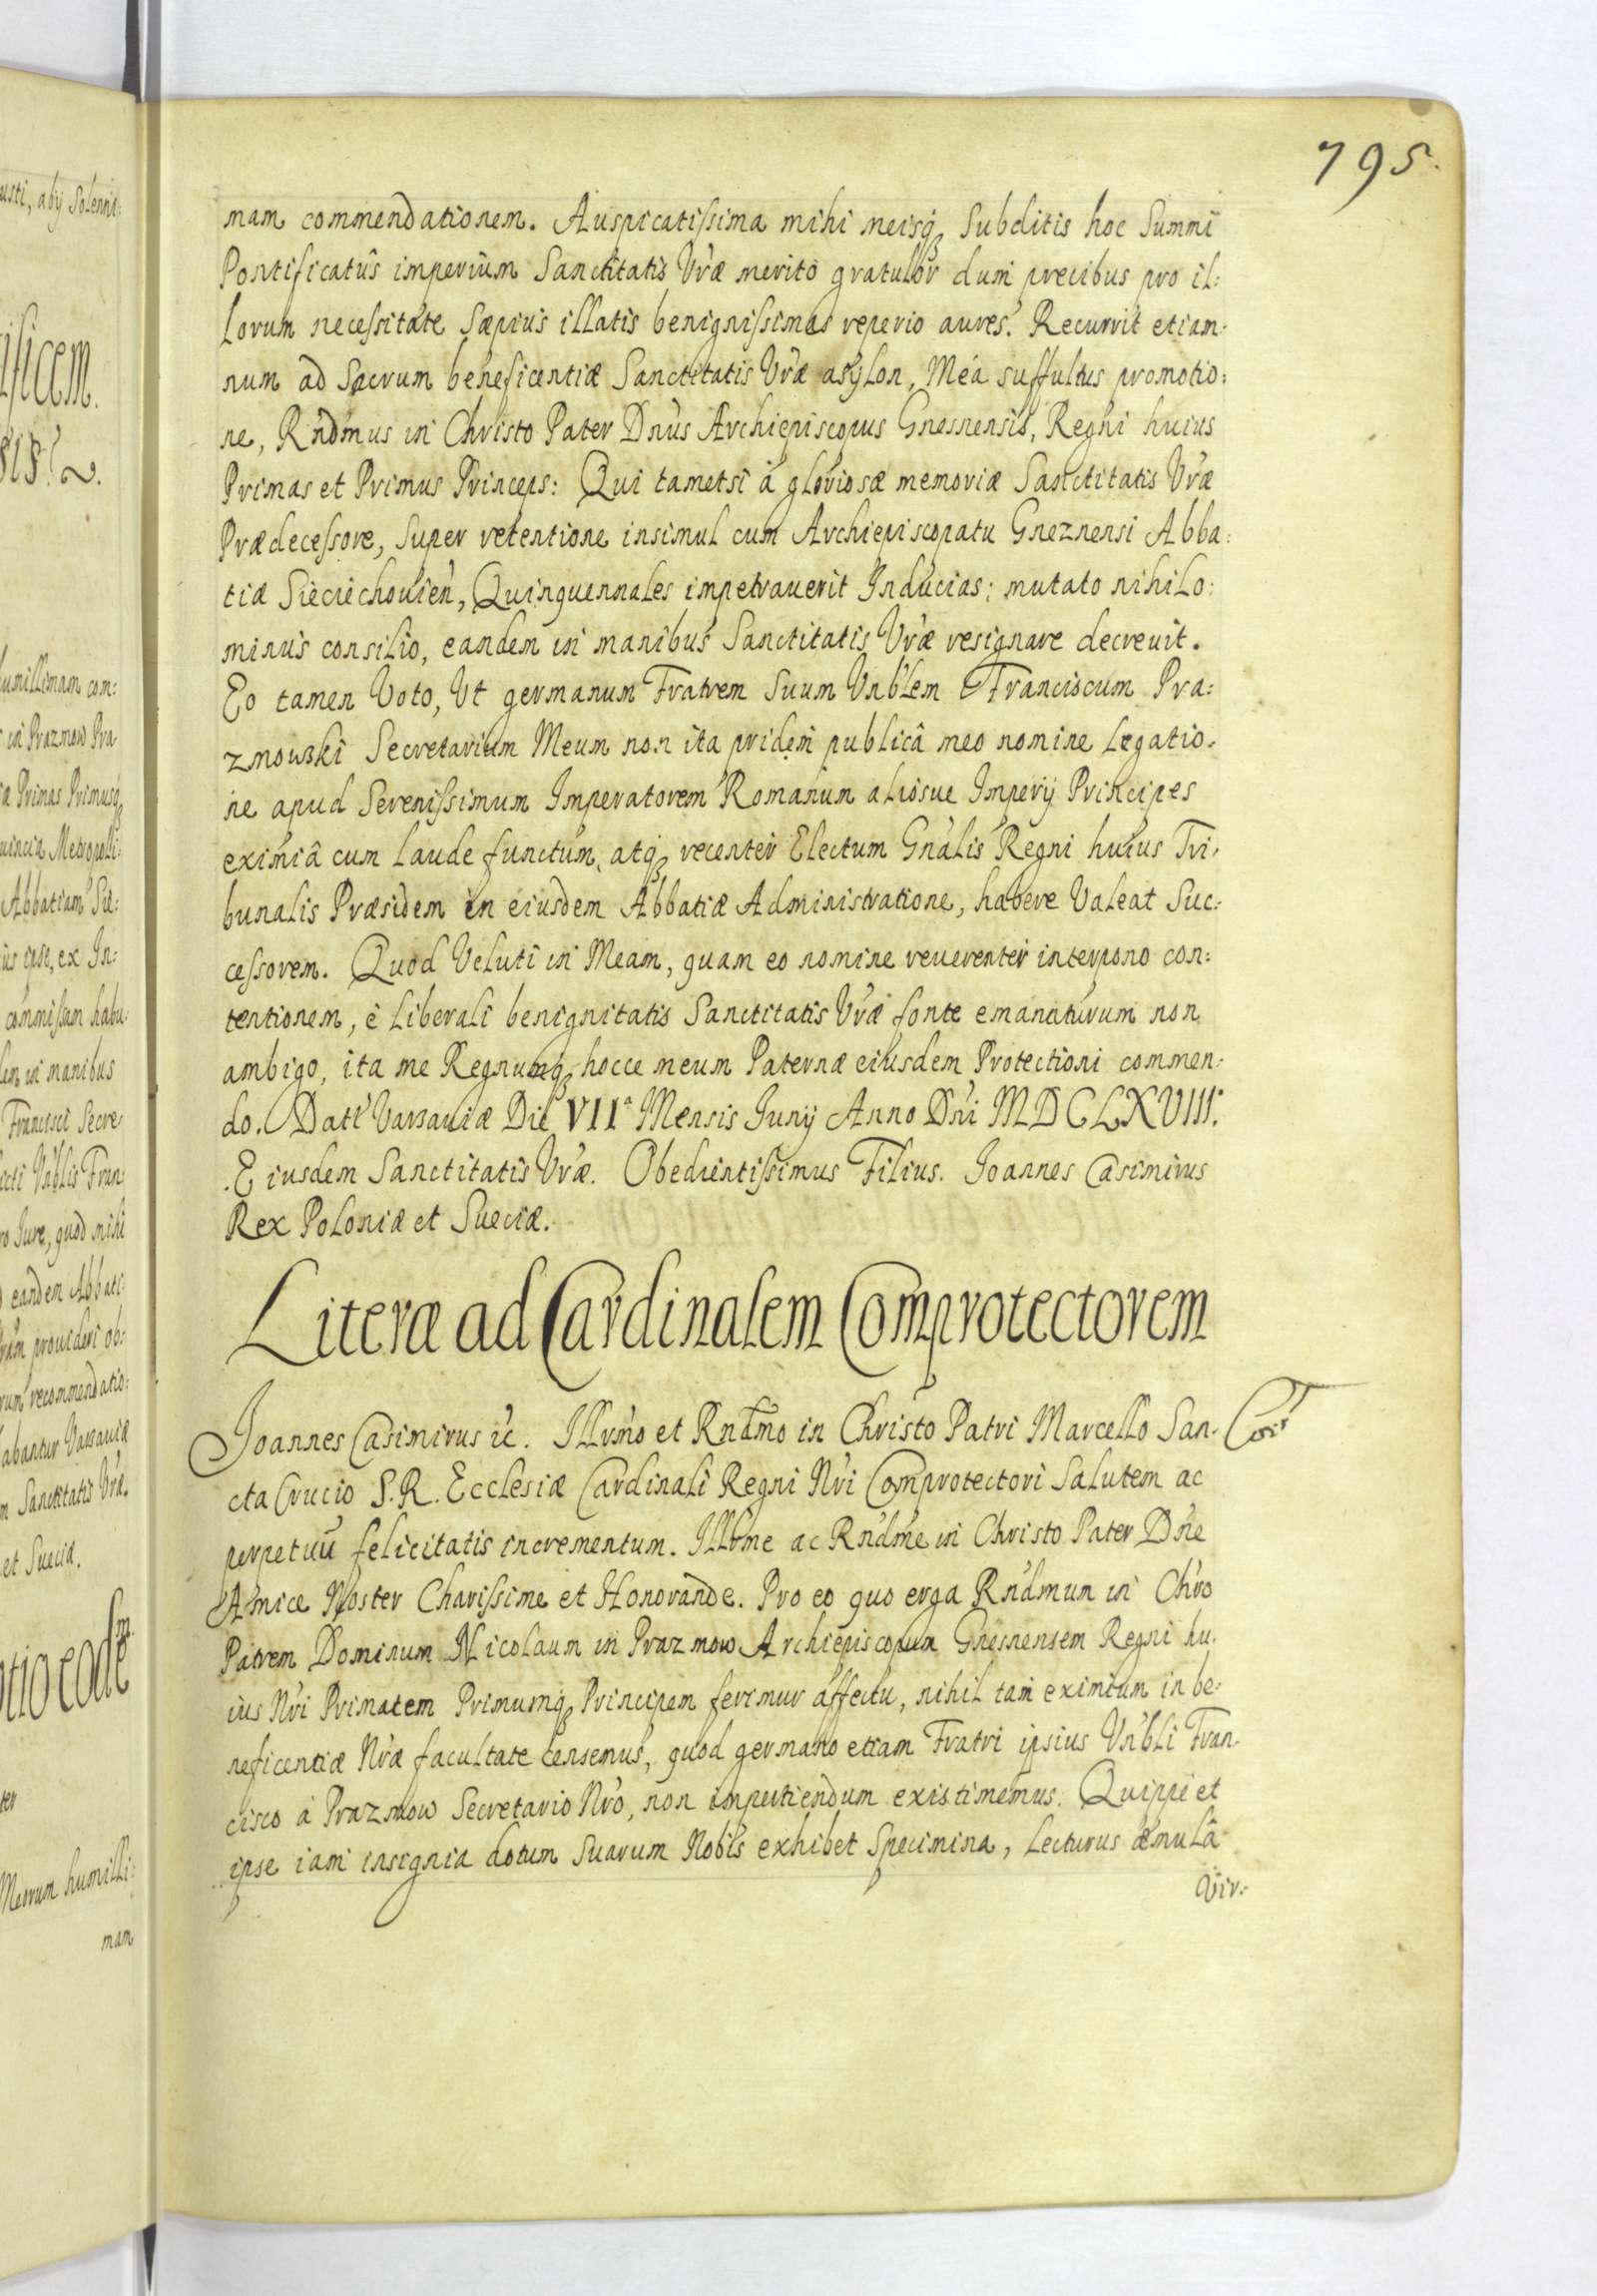 795.
mam commendationem. Auspicatissima mihi meisq3 Subditis hoc Summi
Pontificatûs imperium Sanctitatis Vræ merito gratulor dum precibus pro il:
lorum necessitate Sæpius illatis benignissimas reperio aures. Recurrit etiam:
num ad Sacrum beneficentiæ Sanctitatis Vræ asylon, Meá suffultus promotio:
ne, Rndmus in Christo Pater Dnus Archiepiscopus Gnesnensis, Regni huius
Primas et Primus Princeps: Qui tametsi à gloriosæ memoriæ Sanctitatis Vræ
Prædecessore, Super retentione insimul cum Archiepiscopatu Gneznensi Abba:
tiæ Sieciechouien, Quinquennales impetrauerit Inducias; mutato nihilo:
minus consilio, eandem in manibus Sanctitatis Vræ resignare decreuit.
Eo tamen Voto, Vt germanum Fratrem Suum Vnblem Franciscum Pra:
zmowski Secretarium Meum non ita pridem publicâ meo nomine Legatio:
ne apud Serenissimum Imperatorem Romanum aliosue Imperij Principes
eximiâ cum laude functum, atq3 recenter Electum Gnalis Regni huius Tri:
bunalis Præsidem in eiusdem Abbatiæ Administratione, habere Valeat Suc:
cessorem. Quod Veluti in Meam, quam eo nomine reuerenter interpono con:
tentionem, è liberali benignitatis Sanctitatis Vræ fonte emanaturum non
ambigo, ita me Regnumq3 hocce meum Paternæ eiusdem Protectioni commen:
do. Datt Varsauiæ Die VIIa Mensis Junij Anno Dni MDCLXVIII.
Eiusdem Sanctitatis Vræ. Obedientissimus Filius. Joannes Casimirus
Rex Poloniæ et Sueciæ.
Literæ ad Cardinalem Comprotectorem
Joannes Casimirus &c. Illrmo et Rndmo in Christo Patri Marcello San:
cta Crucio S.R. Ecclesiæ Cardinali Regni Nri Comprotectori Salutem ac
perpetuū felicitatis incrementum. Illrme ac Rndme in Christo Pater Dne
Amice Noster Charissime et Honorande. Pro eo quo erga Rndmum in Chro
Patrem Dominum Nicolaum in Prazmow Archiepiscopum Gnesnensem Regni hu:
ius Nri Primatem Primumq3 Principem ferimur affectu, nihil tam eximium in be:
neficentiæ Nræ facultate censemus, quod germano etiam Fratri ipsius Vnbli Fran:
cisco à Prazmow Secretario Nro, non impertiendum existimemus. Quippe et
ipse iam insignia dotum Suarum Nobis exhibet Specimina, Lecturus æmulâ
Vir: